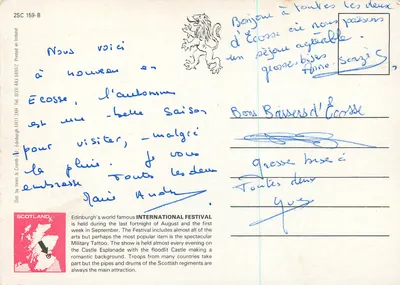 2SC 159-B
Nous voici
à nouveau en
Ecosse, l'automne
est une belle saison
pour visiter, malgré
la pluie. Je vous
embrasse toutes les deux
Marie Andrée
Bonjour à toutes les deux
d'Ecosse où nous passons
un séjour agréable.
grosses bises
Bons Baisers d'Ecosse
Grosse bise à
Toutes deux
Yves
SCOTLAND
Edinburgh's world famous INTERNATIONAL FESTIVAL
is held during the last fortnight of August and the first
week in September. The Festival includes almost all of the
arts but perhaps the most popular item is the spectacular
Military Tattoo. The show is held almost every evening on
the Castle Esplanade with the floodlit Castle making a
romantic background. Troops from many countries take
part but the pipes and drums of the Scottish regiments are
always the main attraction.